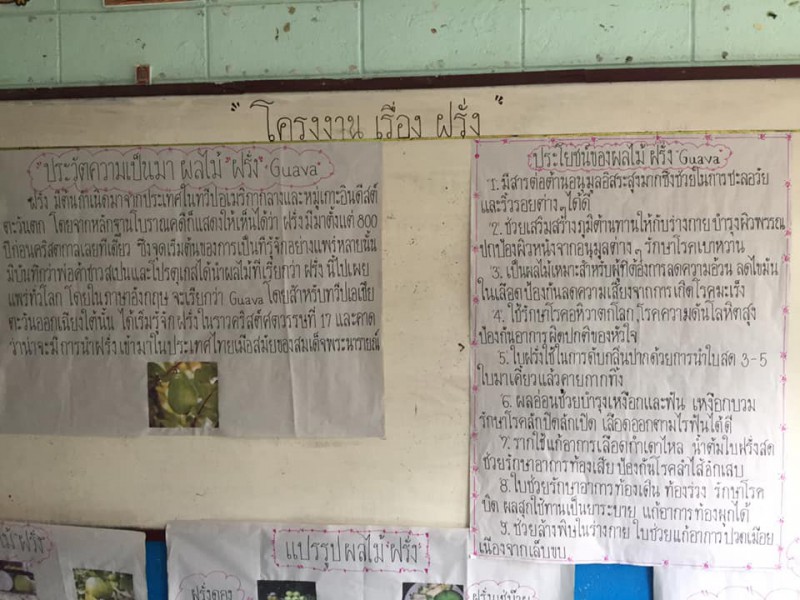 " โครงงาน เรื่อง ฝรั่ง "
"ประวัติความเป็นมา ผลไม้ "ฝรั่ง" "Guava"
ฝรั่ง มีต้นกำเนิดมาจากประเทศในทวีปอเมริกากลางและหมู่เกาะอินดีสต์
ตะวันตก โดยจากหลักฐานโบราณคดีก็แสดงให้เห็นได้ว่า ฝรั่งมีมาตั้งแต่ 800
ปีก่อนคริสตกาลเลยทีเดียว ซึ่งจุดเริ่มต้นของการเป็นที่รู้จักอย่างแพร่หลายนั้น
มีบันทึกว่าพ่อค้าชาวสเปนและโปรตุเกสได้นำผลไม้ที่เรียกว่า ฝรั่ง นี้ไปเผย
แพร่ทั่วโลก โดยในภาษาอังกฤษ จะเรียกว่า Guava โดยสำหรับทวีปเอเชีย
ตะวันออกเฉียงใต้นั้น ได้เริ่มรู้จักฝรั่งในราวคริสต์ศตวรรษที่ 17 และคาด
ว่าน่าจะมีการนำฝรั่งเข้ามาในประเทศไทยเมื่อสมัยของสมเด็จพระนารายณ์
ประโยชน์ของผลไม้ ฝรั่ง "Guava"
1. มีสารต่อต้านอนุมูลอิสระสูงมากซึ่งช่วยในการชะลอวัย
และริ้วรอยต่างๆ ได้ดี
2. ช่วยเสริมสร้างภูมิต้านทานให้กับร่างกาย บำรุงผิวพรรณ
ปกป้องผิวหนังจากอนุมูลต่างๆ รักษาโรคเบาหวาน
3. เป็นผลไม้เหมาะสำหรับผู้ที่ต้องการลดความอ้วน ลดไขมัน
ในเลือดป้องกันลดความเสี่ยงจากการเกิดโรคมะเร็ง
4. ใช้รักษาโรคอหิวาตกโลก, โรคความดันโลหิตสูง
ป้องกันอาการผิดปกติของหัวใจ
5. ใบฝรั่งใช้ในการดับกลิ่นปากด้วยการนำใบสด 3-5
ใบมาเคี้ยวแล้วคายกากทิ้ง
6. ผลอ่อนช่วยบำรุงเหงือกและฟัน เหงือกบวม
รักษาโรคลักปิดลักเปิด เลือดออกตามไรฟันได้ดี
7. รากใช้แก้อาการเลือดกำเดาไหล น้ำต้มใบฝรั่งสด
ช่วยรักษาอาการท้องเสีย ป้องกันโรคลำไส้อักเสบ
8. ใบช่วยรักษาอาการท้องเดิน ท้องร่วง รักษาโรค
บิด ผลสุกใช้ทานเป็นยาระบาย แก้อาการท้องผูกได้
9. ช่วยล้างพิษในร่างกาย ใบช่วยแก้อาการปวดเมื่อย
เนื่องจากเล็บขบ
"ฝรั่ง"
แปรรูป ผลไม้ "ฝรั่ง"
ฝรั่งดอง
ฝรั่งแช่บ๊วย